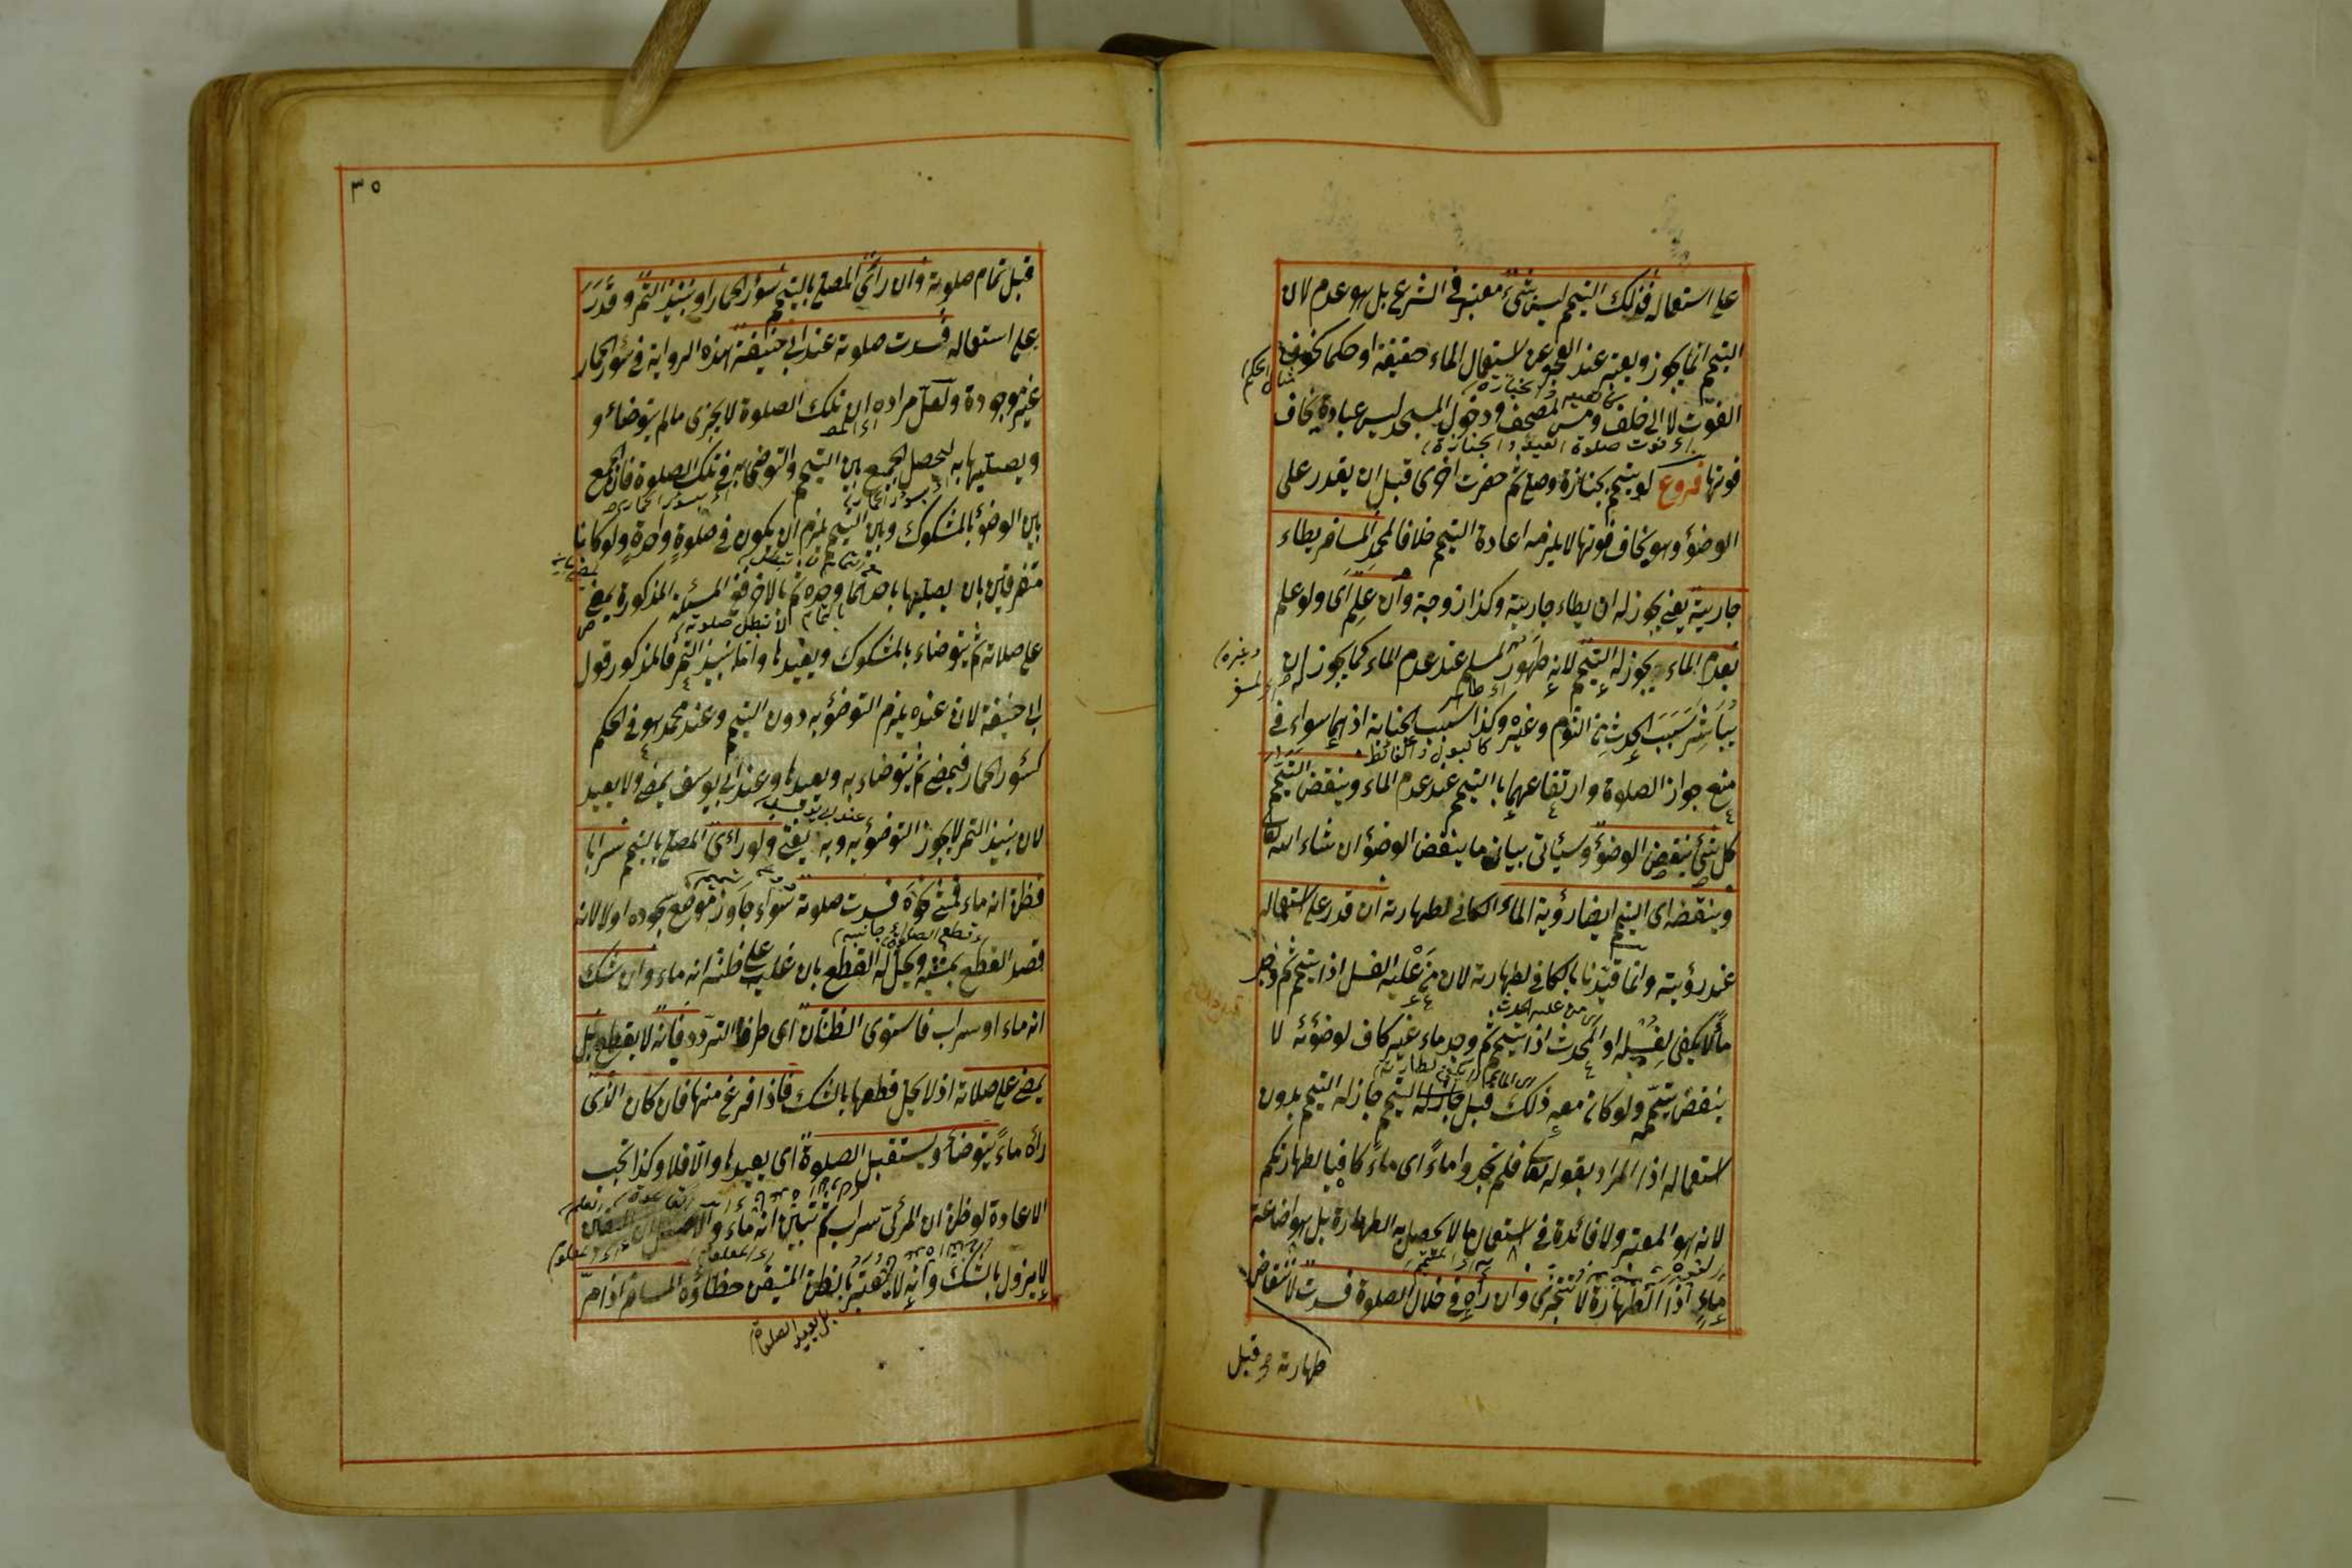 على استعماله فذلك التيمم ليس بشئ معتبر في الشرع بل هو عدم لان
التيمم انما يجوز ويعتبر عند العجز عن استعمال الماء حقيقة او حكما كخوف
الفوت لا الى خلف ومس المصحف ودخول المسجد ليس عبادة يخاف
اى فوت صلوة العيد والجنازة
فوتها فروع لو تيمم لجنازة وصلى ثم حضرت اخرى قبل ان يقدر على
الوضؤ وهو يخاف فوتها لا يلزمه اعادة التيمم خلافا لمحمد المسافر يطاء
جاريته يعني يجوز له ان يطاء جاريته وكذا زوجته وان علم اى ولو علم
بعدم الماء ويجوز له التيمم لانه طهور المسلم عند عدم الماء كما يجوز له ان
وغيره
يباشر سبب الحدث من النوم وغيره وكذا سبب الجنابة اذ هما سواء في
كالبول والغائط
منع جواز الصلوة وارتفاعهما بالتيمم عند عدم الماء وينقض التيمم
كل شئ ينقض الوضؤ وسيأتى بيان ما ينقض الوضؤ ان شاء الله تعالى
وينقضه اى التيمم ايضا رؤية الماء الكافي لطهارته ان قدر على استعماله
عند رؤيته وانما قيدنا بالكافي لطهارته لان من عليه الغسل اذا تيمم ثم وجد
من عليه الحدث
ماء لا يكفي لغسله او المحدث اذا تيمم ثم وجد ماء غير كاف لوضوئه لا
ينقض تيممه ولو كان معه ذلك قبل التيمم جاز له التيمم بدون
استعماله اذا المراد بقوله تعالى فلم تجدوا ماء اى ماء كافيا لطهارتكم
لانه هو المعتبر ولا فائدة في استعمال ما لا يحصل به الطهارة بل هو اضاعة
ماء اذا الطهارة لا تتجزى وان رآه في خلال الصلوة فسدت لانتقاض
طهارته قبل
٣٥
قبل تمام صلوته وان رأى المصلى بالتيمم سؤر الحمار او نبيذ التمر وقدر
على استعماله فسدت صلوته عند ابي حنيفة هذه الرواية في سؤر الحمار
غير موجودة ولعل مراده ان تلك الصلوة لا يجزى ما لم يتوضاء و
ويصليها به ليحصل الجمع بين التيمم والتوضى به في تلك الصلوة فان الجمع
اى بسؤر الحمار
بين الوضؤ بالمشكوك وبين التيمم يلزم ان يكون في صلوة واحدة ولو كانا
متفرقين بان يصليها باحدهما وحده ثم بالاخر ففي المسئلة المذكورة يمضى
لا تبطل صلوته
على صلاته ثم يتوضاء بالمشكوك ويعيدها واما نبيذ التمر فالمذكور قول
ابي حنيفة لان عنده يلزم التوضؤ به دون التيمم وعند محمد هو في الحكم
كسؤر الحمار فيمضى ثم يتوضاء به ويعيدها وعند ابي يوسف يمضى ولا يعيد
لان نبيذ التمر لا يجوز التوضؤ به وبه يفتى ولو رأى المصلى بالتيمم سرابا
فظن انه ماء فمشى نحوه فسدت صلوته سواء جاوز موضع سجوده او لا لانه
قصد القطع بمشيه ويحل له القطع بان غلب على ظنه انه ماء وان شك
انه ماء او سراب فاستوى الظنان اى طرفا التردد فانه لا يقطع بل
يمضى على صلاته اذ لا يحل قطعها بالشك فاذا فرغ منها فان كان الذى
رآه ماء يتوضأ ويستقبل الصلوة اى يعيدها والا فلا وكذا تجب
الاعادة لو ظن ان المرئى سراب ثم تبين انه ماء
لا يزول بالشك وانه لا يعتبر بالظن المتيقن خطاؤه المسافر اذا مر
بل يعيد الصلوة